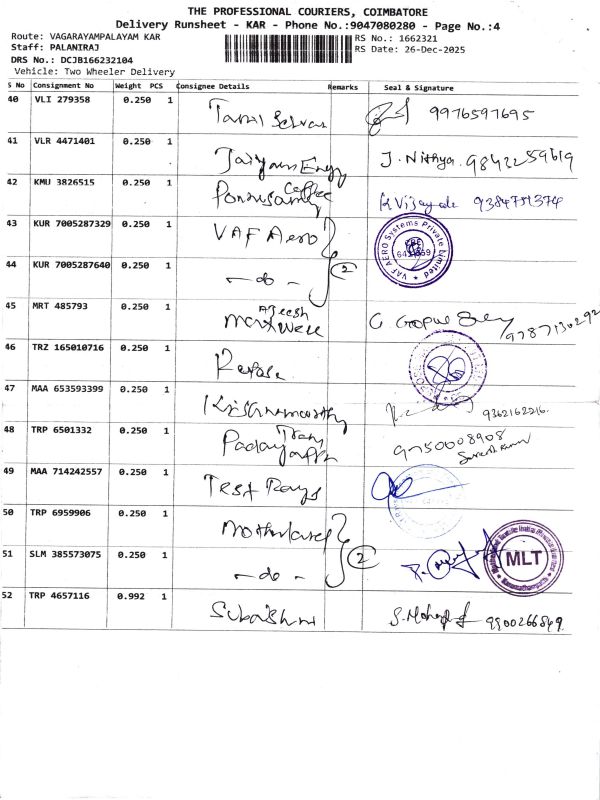 THE PROFESSIONAL COURIERS, COIMBATORE
Delivery Runsheet - KAR - Phone No.:9047080280 - Page No.:4
Route: VAGARAYAMPALAYAM KAR RS No.: 1662321
Staff: PALANIRAJ RS Date: 26-Dec-2025
DRS No.: DCJB166232104
Vehicle: Two Wheeler Delivery
S No Consignment No Weight PCS Consignee Details Remarks Seal & Signature
40 VLI 279358 0.250 1 Tamil Selvan 9976597695
41 VLR 4471401 0.250 1 J. Nithya. 9842259619
42 KMU 3826515 0.250 1 Ponnusamy Coffee K Vijaya 9384751374
43 KUR 7005287329 0.250 1 VAF Aero
VAF AERO Systems Private Limited
44 KUR 7005287640 0.250 1 - do - 2
45 MRT 485793 0.250 1 Ajeesh 9787130292
46 TRZ 165010716 0.250 1
47 MAA 653593399 0.250 1 Krishnamoorthy 9362162216.
48 TRP 6501332 0.250 1 9750008908
49 MAA 714242557 0.250 1 Test Rays
50 TRP 6959906 0.250 1
51 SLM 385573075 0.250 1 - do - 2
MLT
52 TRP 4657116 0.992 1 9900266849.